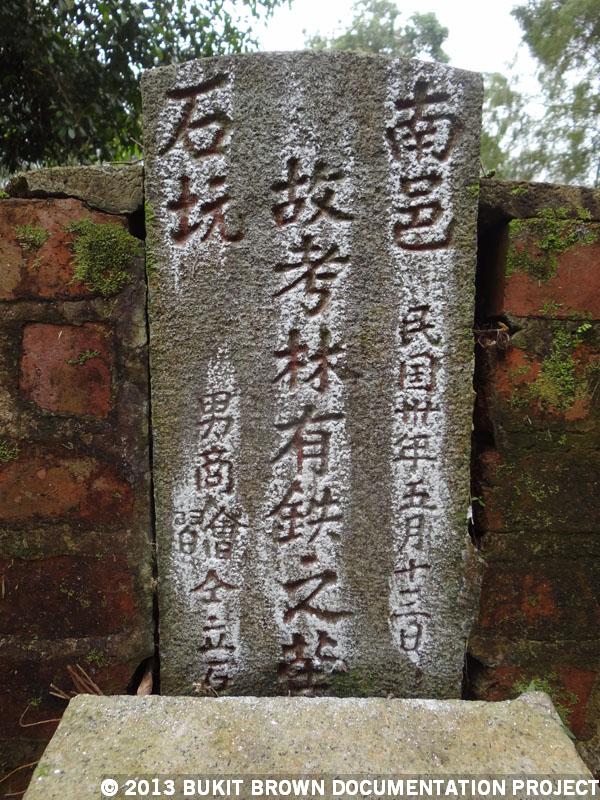 南邑
民国卅年五月十三日
故考林有鉄之塋
石坑
男商繪習仝立石
© 2013 BUKIT BROWN DOCUMENTATION PROJECT